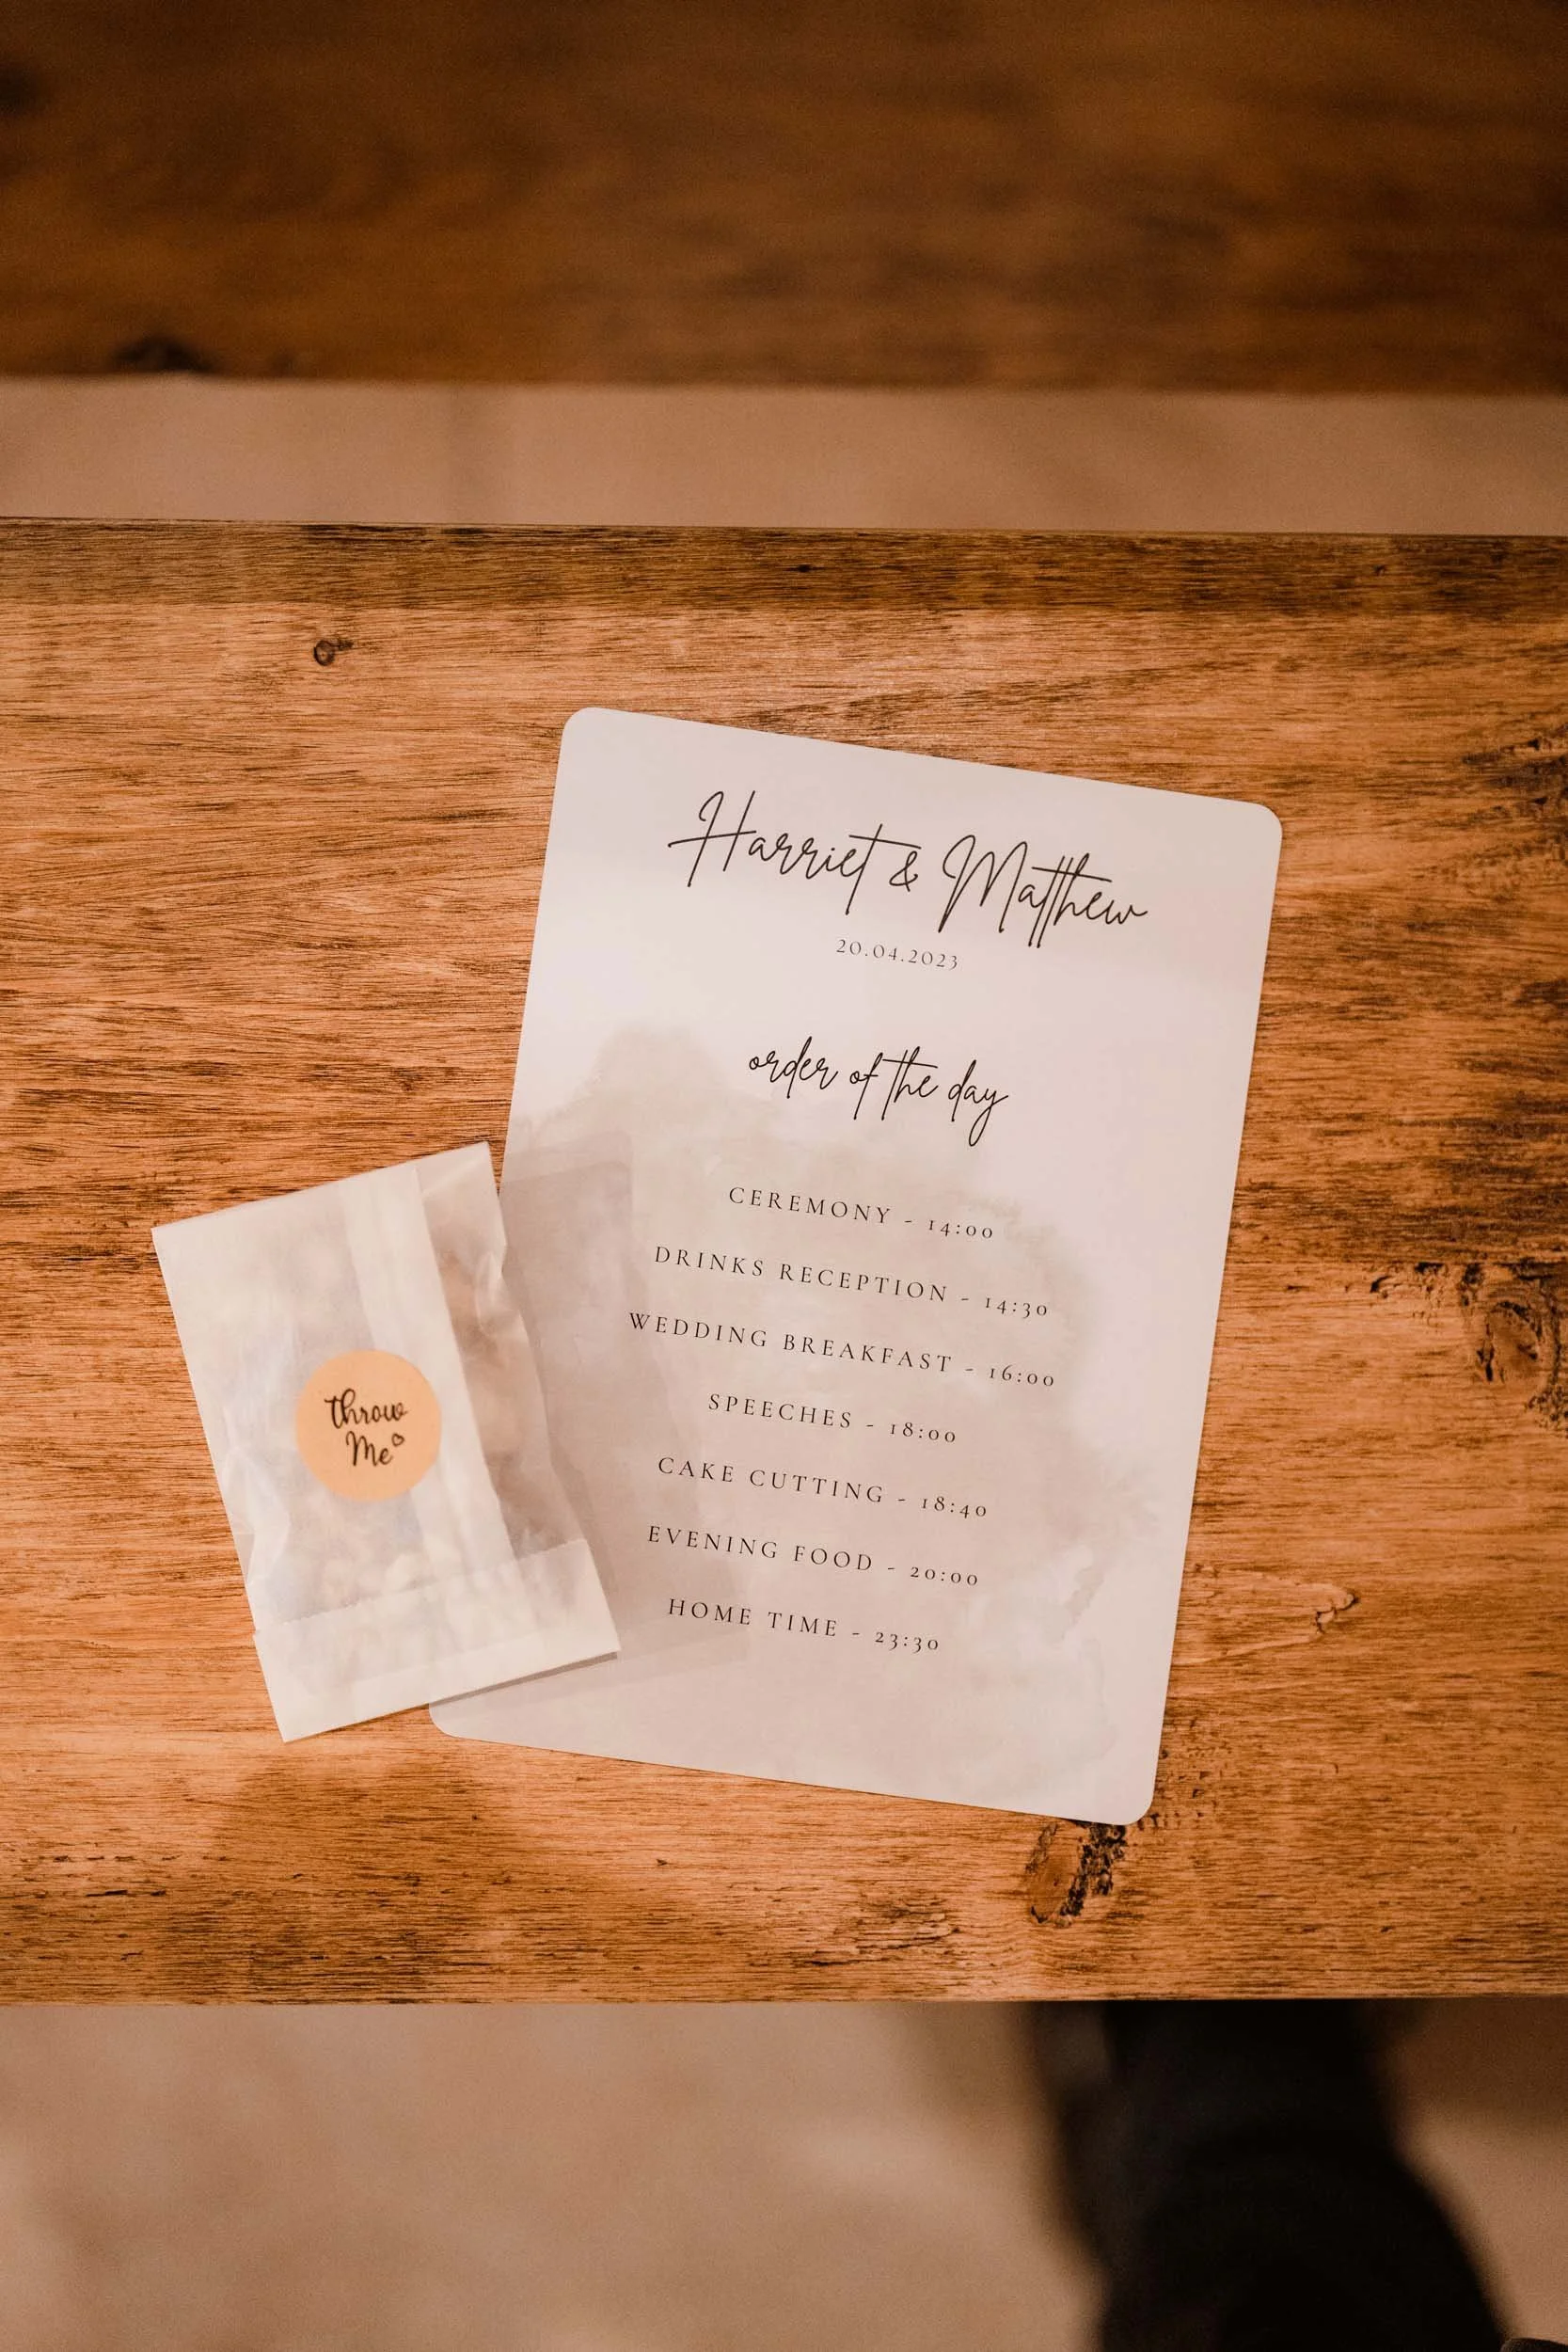 Harriet & Matthew
20.04.2023
order of the day
CEREMONY - 14:00
DRINKS RECEPTION - 14:30
WEDDING BREAKFAST - 16:00
SPEECHES - 18:00
CAKE CUTTING - 18:40
EVENING FOOD - 20:00
HOME TIME - 23:30
throw
Me